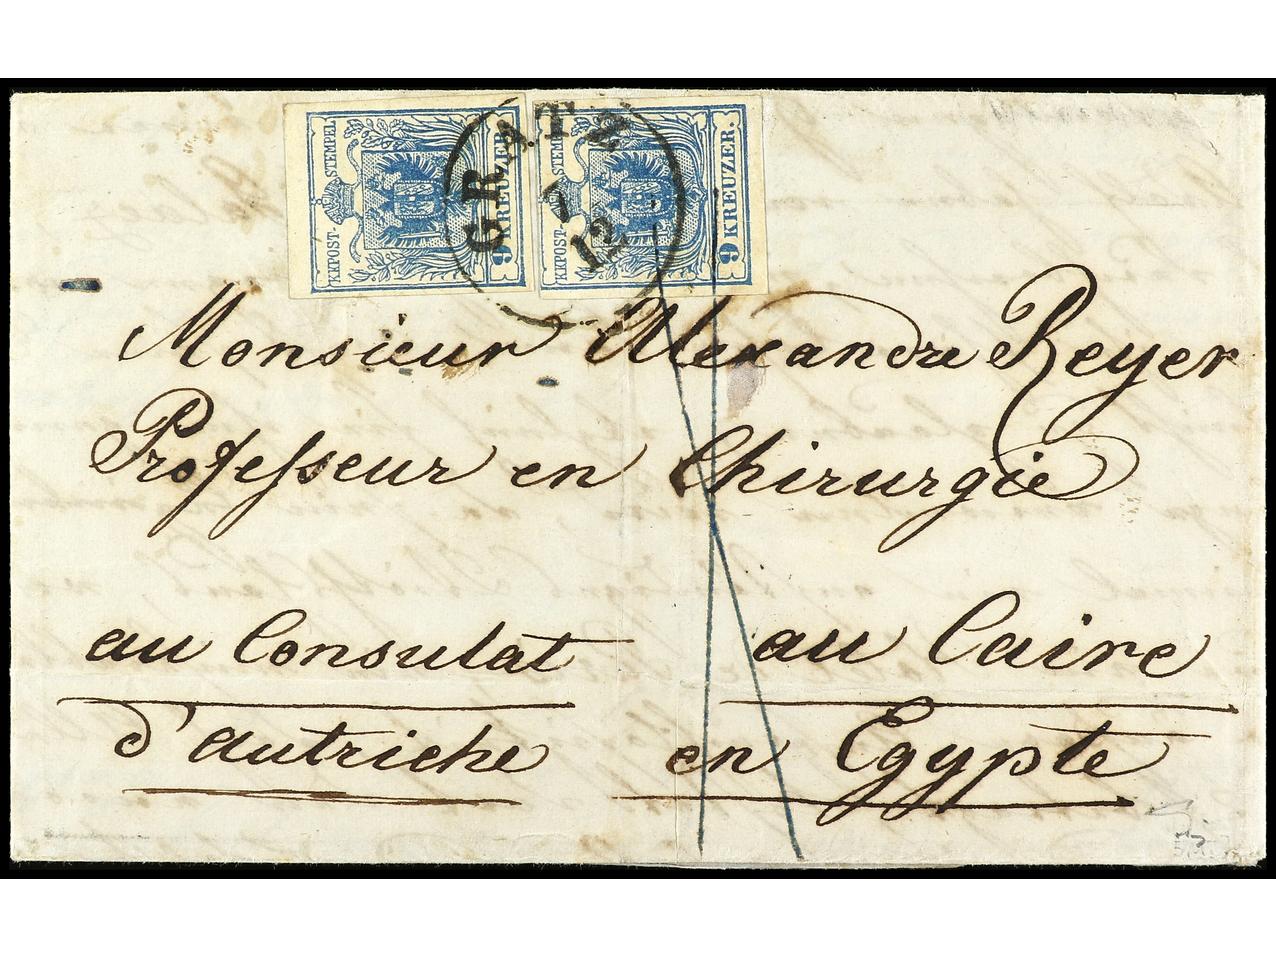 KKPOST-STEMPEL
9 KREUZER.
KKPOST-STEMPEL
9 KREUZER.
GRATZ
7
12.
Monsieur Alexandre Reyer
Professeur en Chirurgie
au Consulat au Caire
d'autriche en Egypte